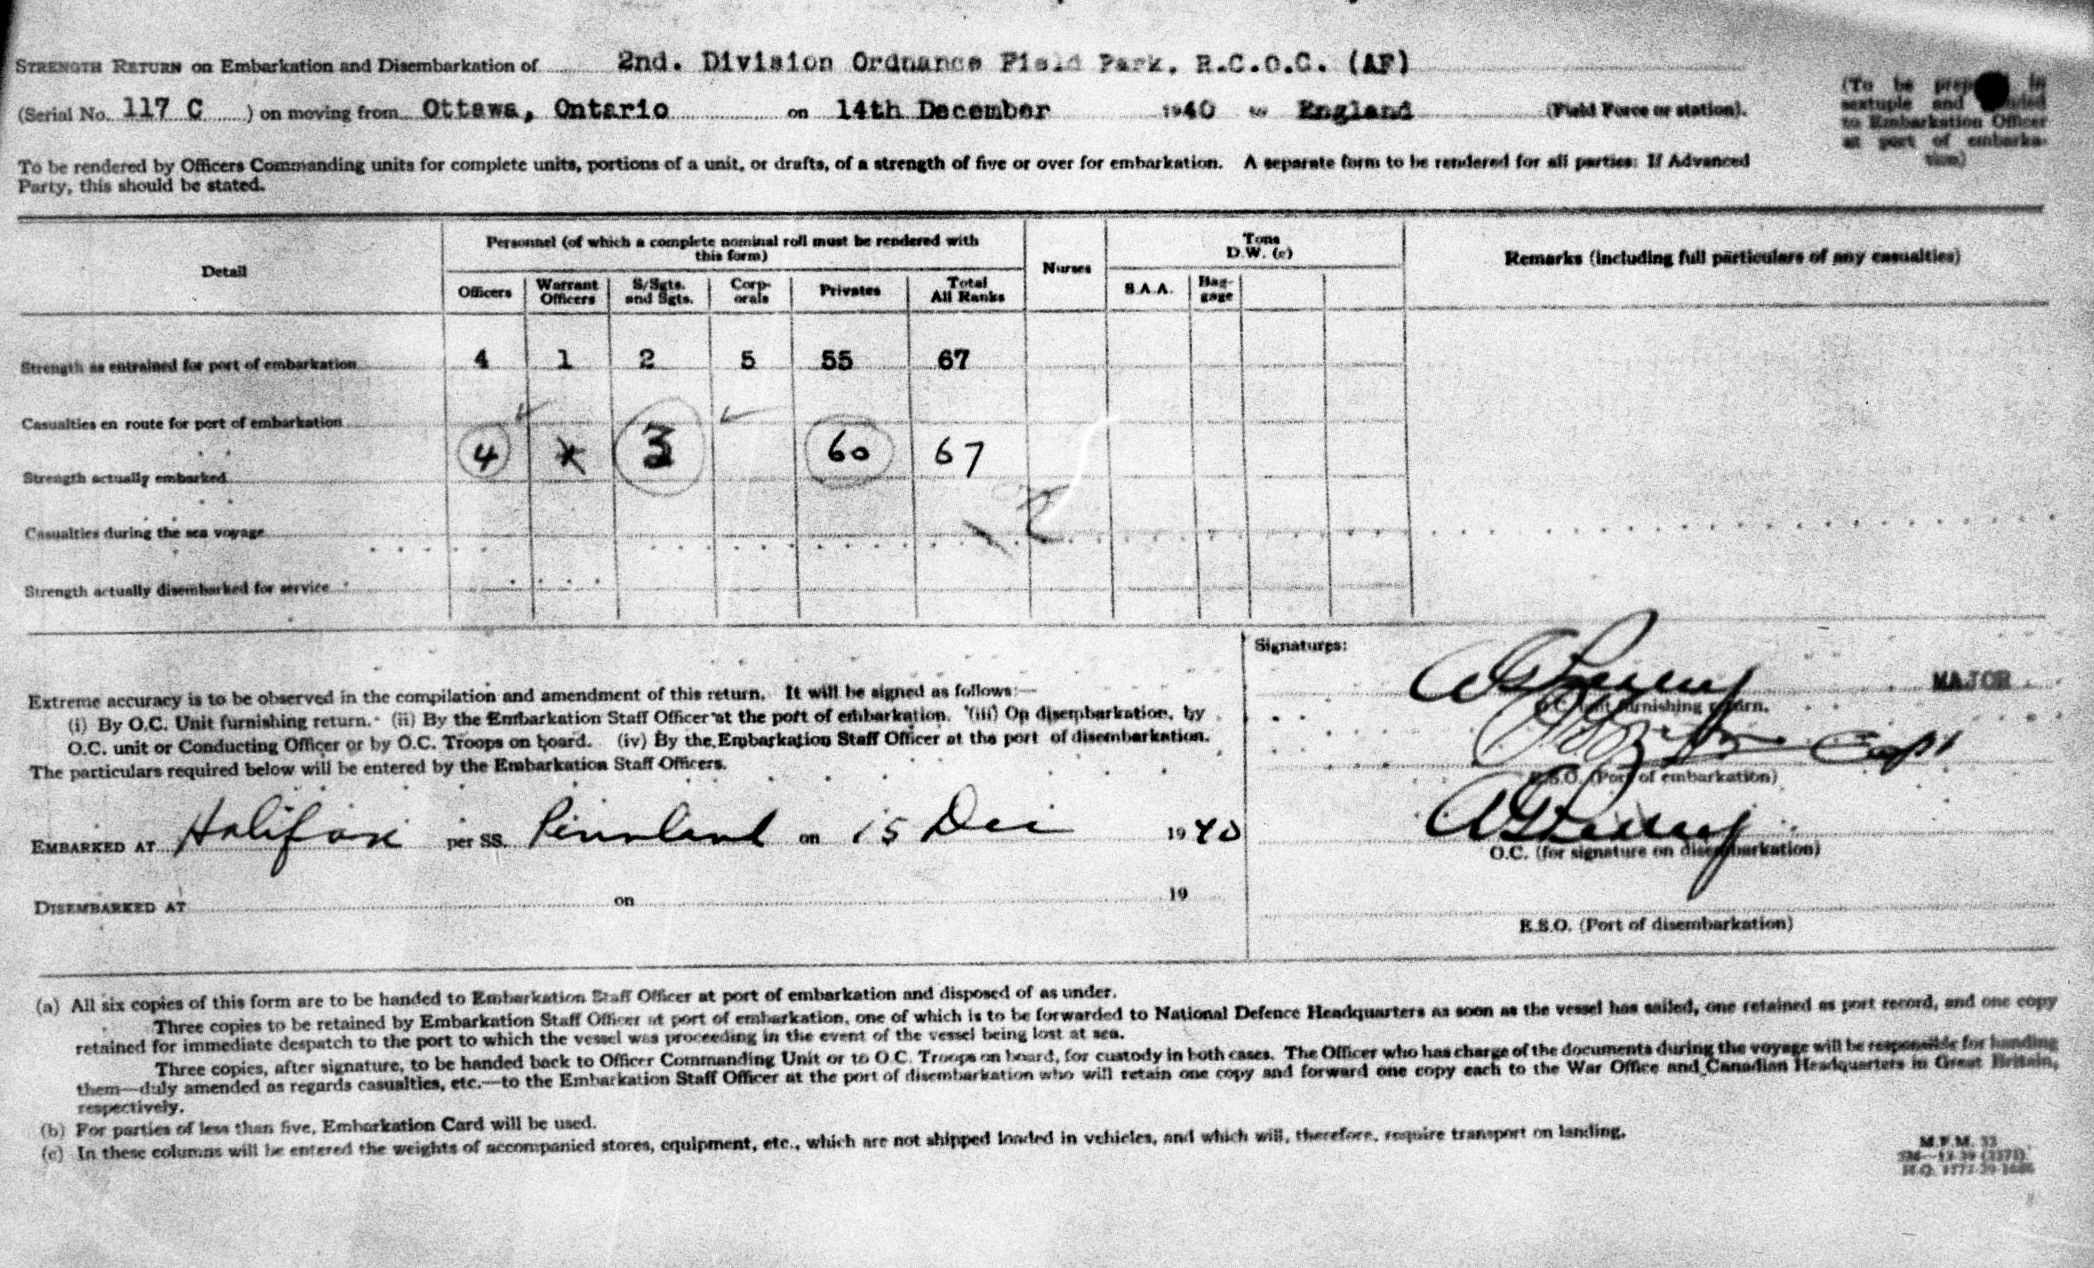 STRENGTH RETURN on Embarkation and Disembarkation of 2nd. Division Ordnance Field Park, R.C.O.C. (AF)
(Serial No. 117 C ) on moving from Ottawa, Ontario on 14th December 1940 to England (Field Force or station).
(To be in
sextuple and
to Embarkation Officer
at port of embarka-
tion)
To be rendered by Officers Commanding units for complete units, portions of a unit, or drafts, of a strength of five or over for embarkation. A separate form to be rendered for all parties: If Advanced
Party, this should be stated.
Detail
Personnel (of which a complete nominal roll must be rendered with
this form)
Nurses
Tons
D.W. (c)
Remarks (including full particulars of any casualties)
Officers Warrant Officers S/Sgts. and Sgts. Corp- orals Privates Total All Ranks S.A.A. Bag- gage
Strength as entrained for port of embarkation 4 1 2 5 55 67
Casualties en route for port of embarkation
Strength actually embarked 4 3 60 67
Casualties during the sea voyage
Strength actually disembarked for service
Signatures:
MAJOR
O.C. unit furnishing return.
Capt
E.S.O. (Port of embarkation)
O.C. (for signature on disembarkation)
E.S.O. (Port of disembarkation)
Extreme accuracy is to be observed in the compilation and amendment of this return. It will be signed as follows:—
(i) By O.C. Unit furnishing return. (ii) By the Embarkation Staff Officer at the port of embarkation. (iii) On disembarkation, by
O.C. unit or Conducting Officer or by O.C. Troops on board. (iv) By the Embarkation Staff Officer at the port of disembarkation.
The particulars required below will be entered by the Embarkation Staff Officers.
EMBARKED AT Halifax per SS. Pennland on 15 Dec 1940
DISEMBARKED AT on 19
(a) All six copies of this form are to be handed to Embarkation Staff Officer at port of embarkation and disposed of as under.
Three copies to be retained by Embarkation Staff Officer at port of embarkation, one of which is to be forwarded to National Defence Headquarters as soon as the vessel has sailed, one retained as port record, and one copy
retained for immediate despatch to the port to which the vessel was proceeding in the event of the vessel being lost at sea.
Three copies, after signature, to be handed back to Officer Commanding Unit or to O.C. Troops on board, for custody in both cases. The Officer who has charge of the documents during the voyage will be responsible for handing
them—duly amended as regards casualties, etc.—to the Embarkation Staff Officer at the port of disembarkation who will retain one copy and forward one copy each to the War Office and Canadian Headquarters in Great Britain,
respectively.
(b) For parties of less than five, Embarkation Card will be used.
(c) In these columns will be entered the weights of accompanied stores, equipment, etc., which are not shipped loaded in vehicles, and which will, therefore, require transport on landing.
M.F.M. 33